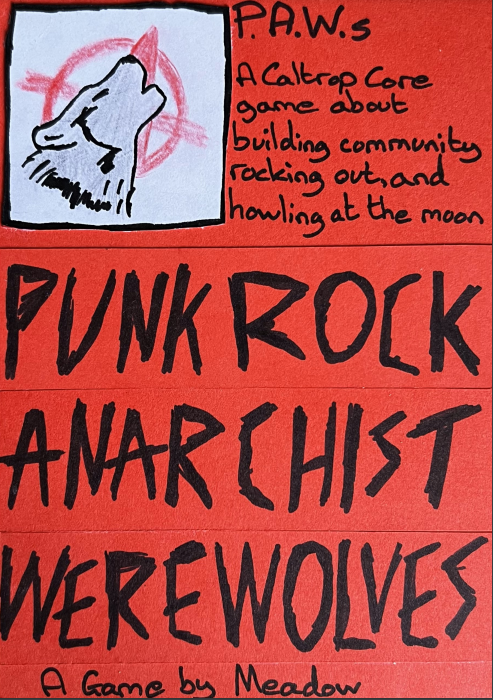 P.A.W.s
A Caltrop Core
game about
building community
rocking out, and
howling at the moon
PUNK ROCK
ANARCHIST
WEREWOLVES
A Game by Meadow